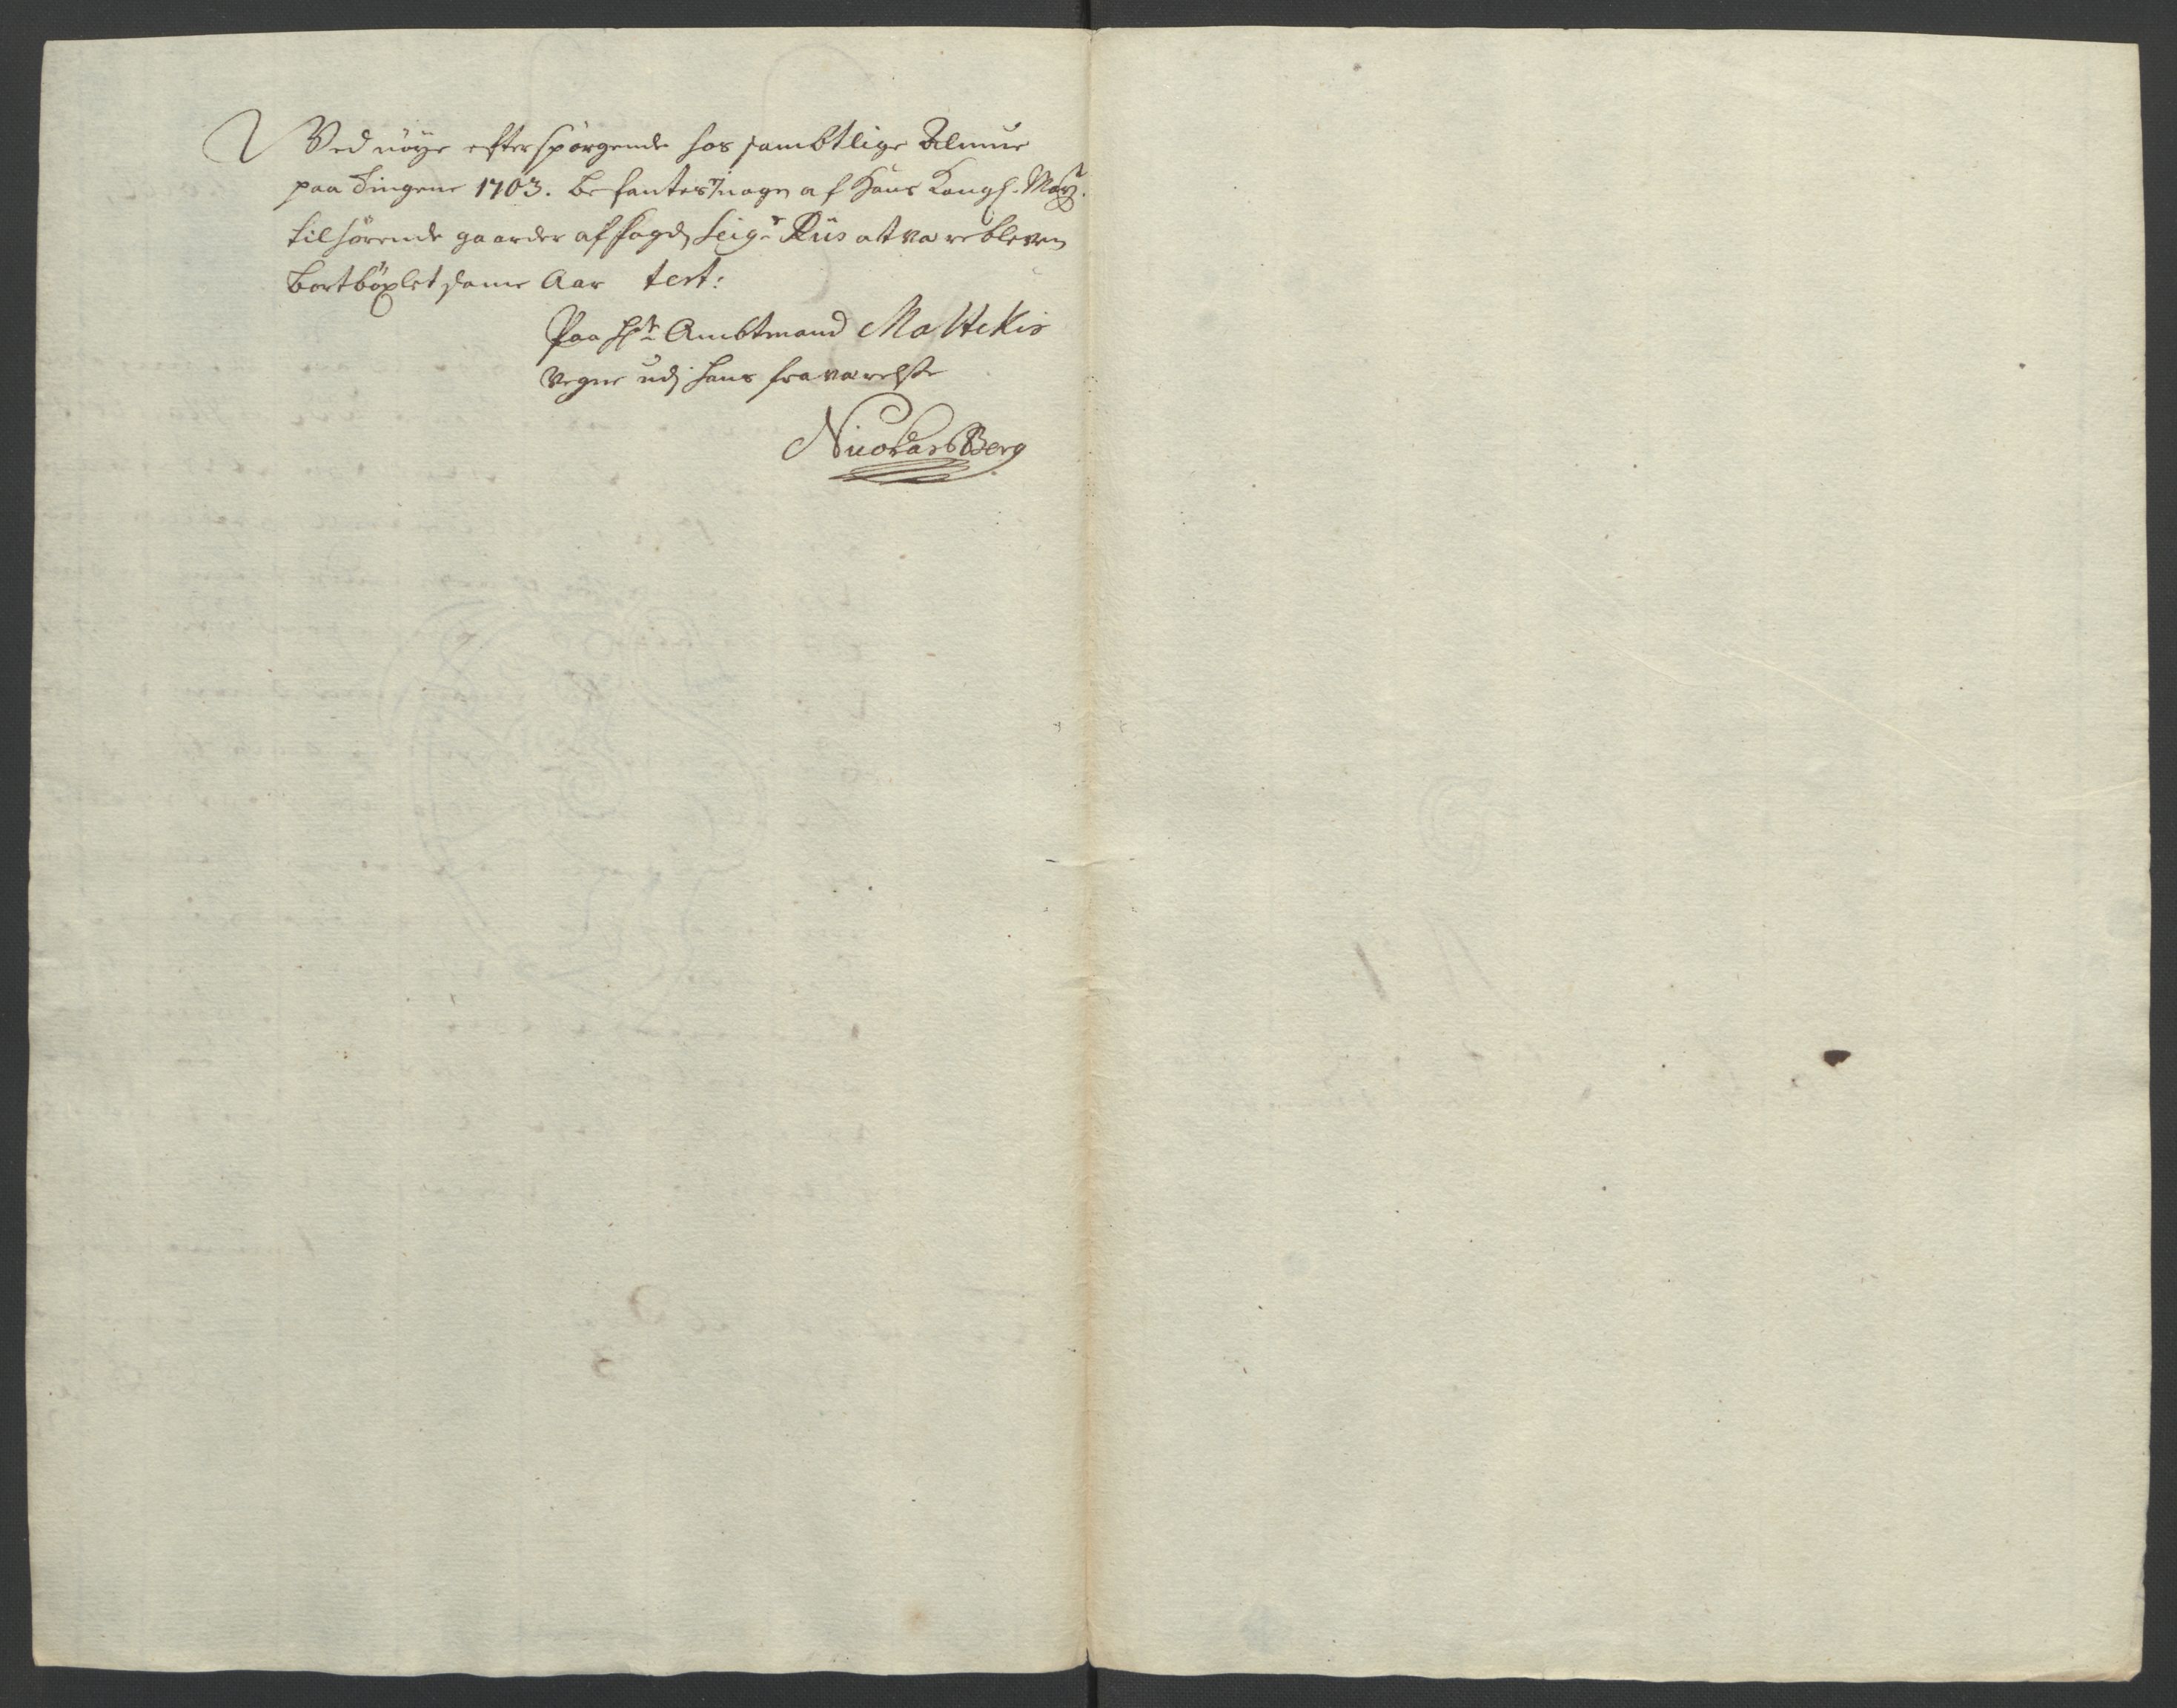 Ved nöye efterspörgende hos sambtlige Almue
paa Tingene 1703. befantes nogen af Hans Kongl. May.
tilhörende gaarder af fogden Seigr Rüs at være bleven
bortböxlet same Aar test:
Paa Hr Ambtmand Moltekis
vegne udj hans fraværelse
Nicolas Berg